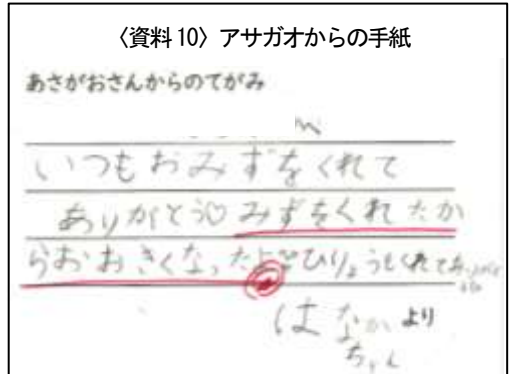 〈資料10〉アサガオからの手紙
あさがおさんからのてがみ
いつもおみずをくれて
ありがとう♡みずをくれたか
らおおきくなったよ ひりょうもくれてあ
はなかちゃん より